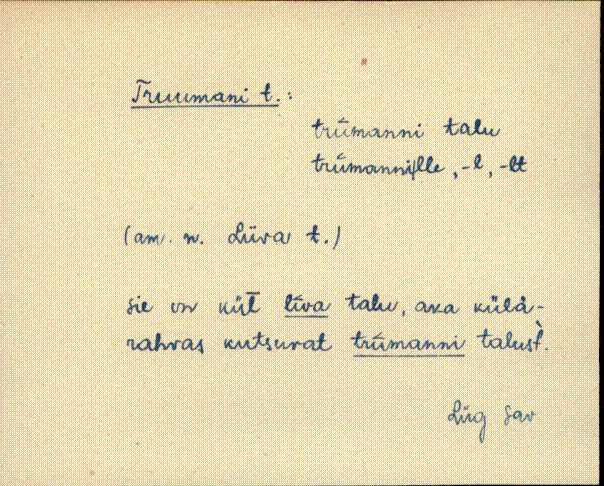 Truumani t.:
trū́manni talu
trū́manni|lle, -l, -lt
(am. n. Liiva t.)
sie on kül̄ līva talu, aka külä-
rahvas kutsuvat trū́manni talust̀.
Lüg Sav